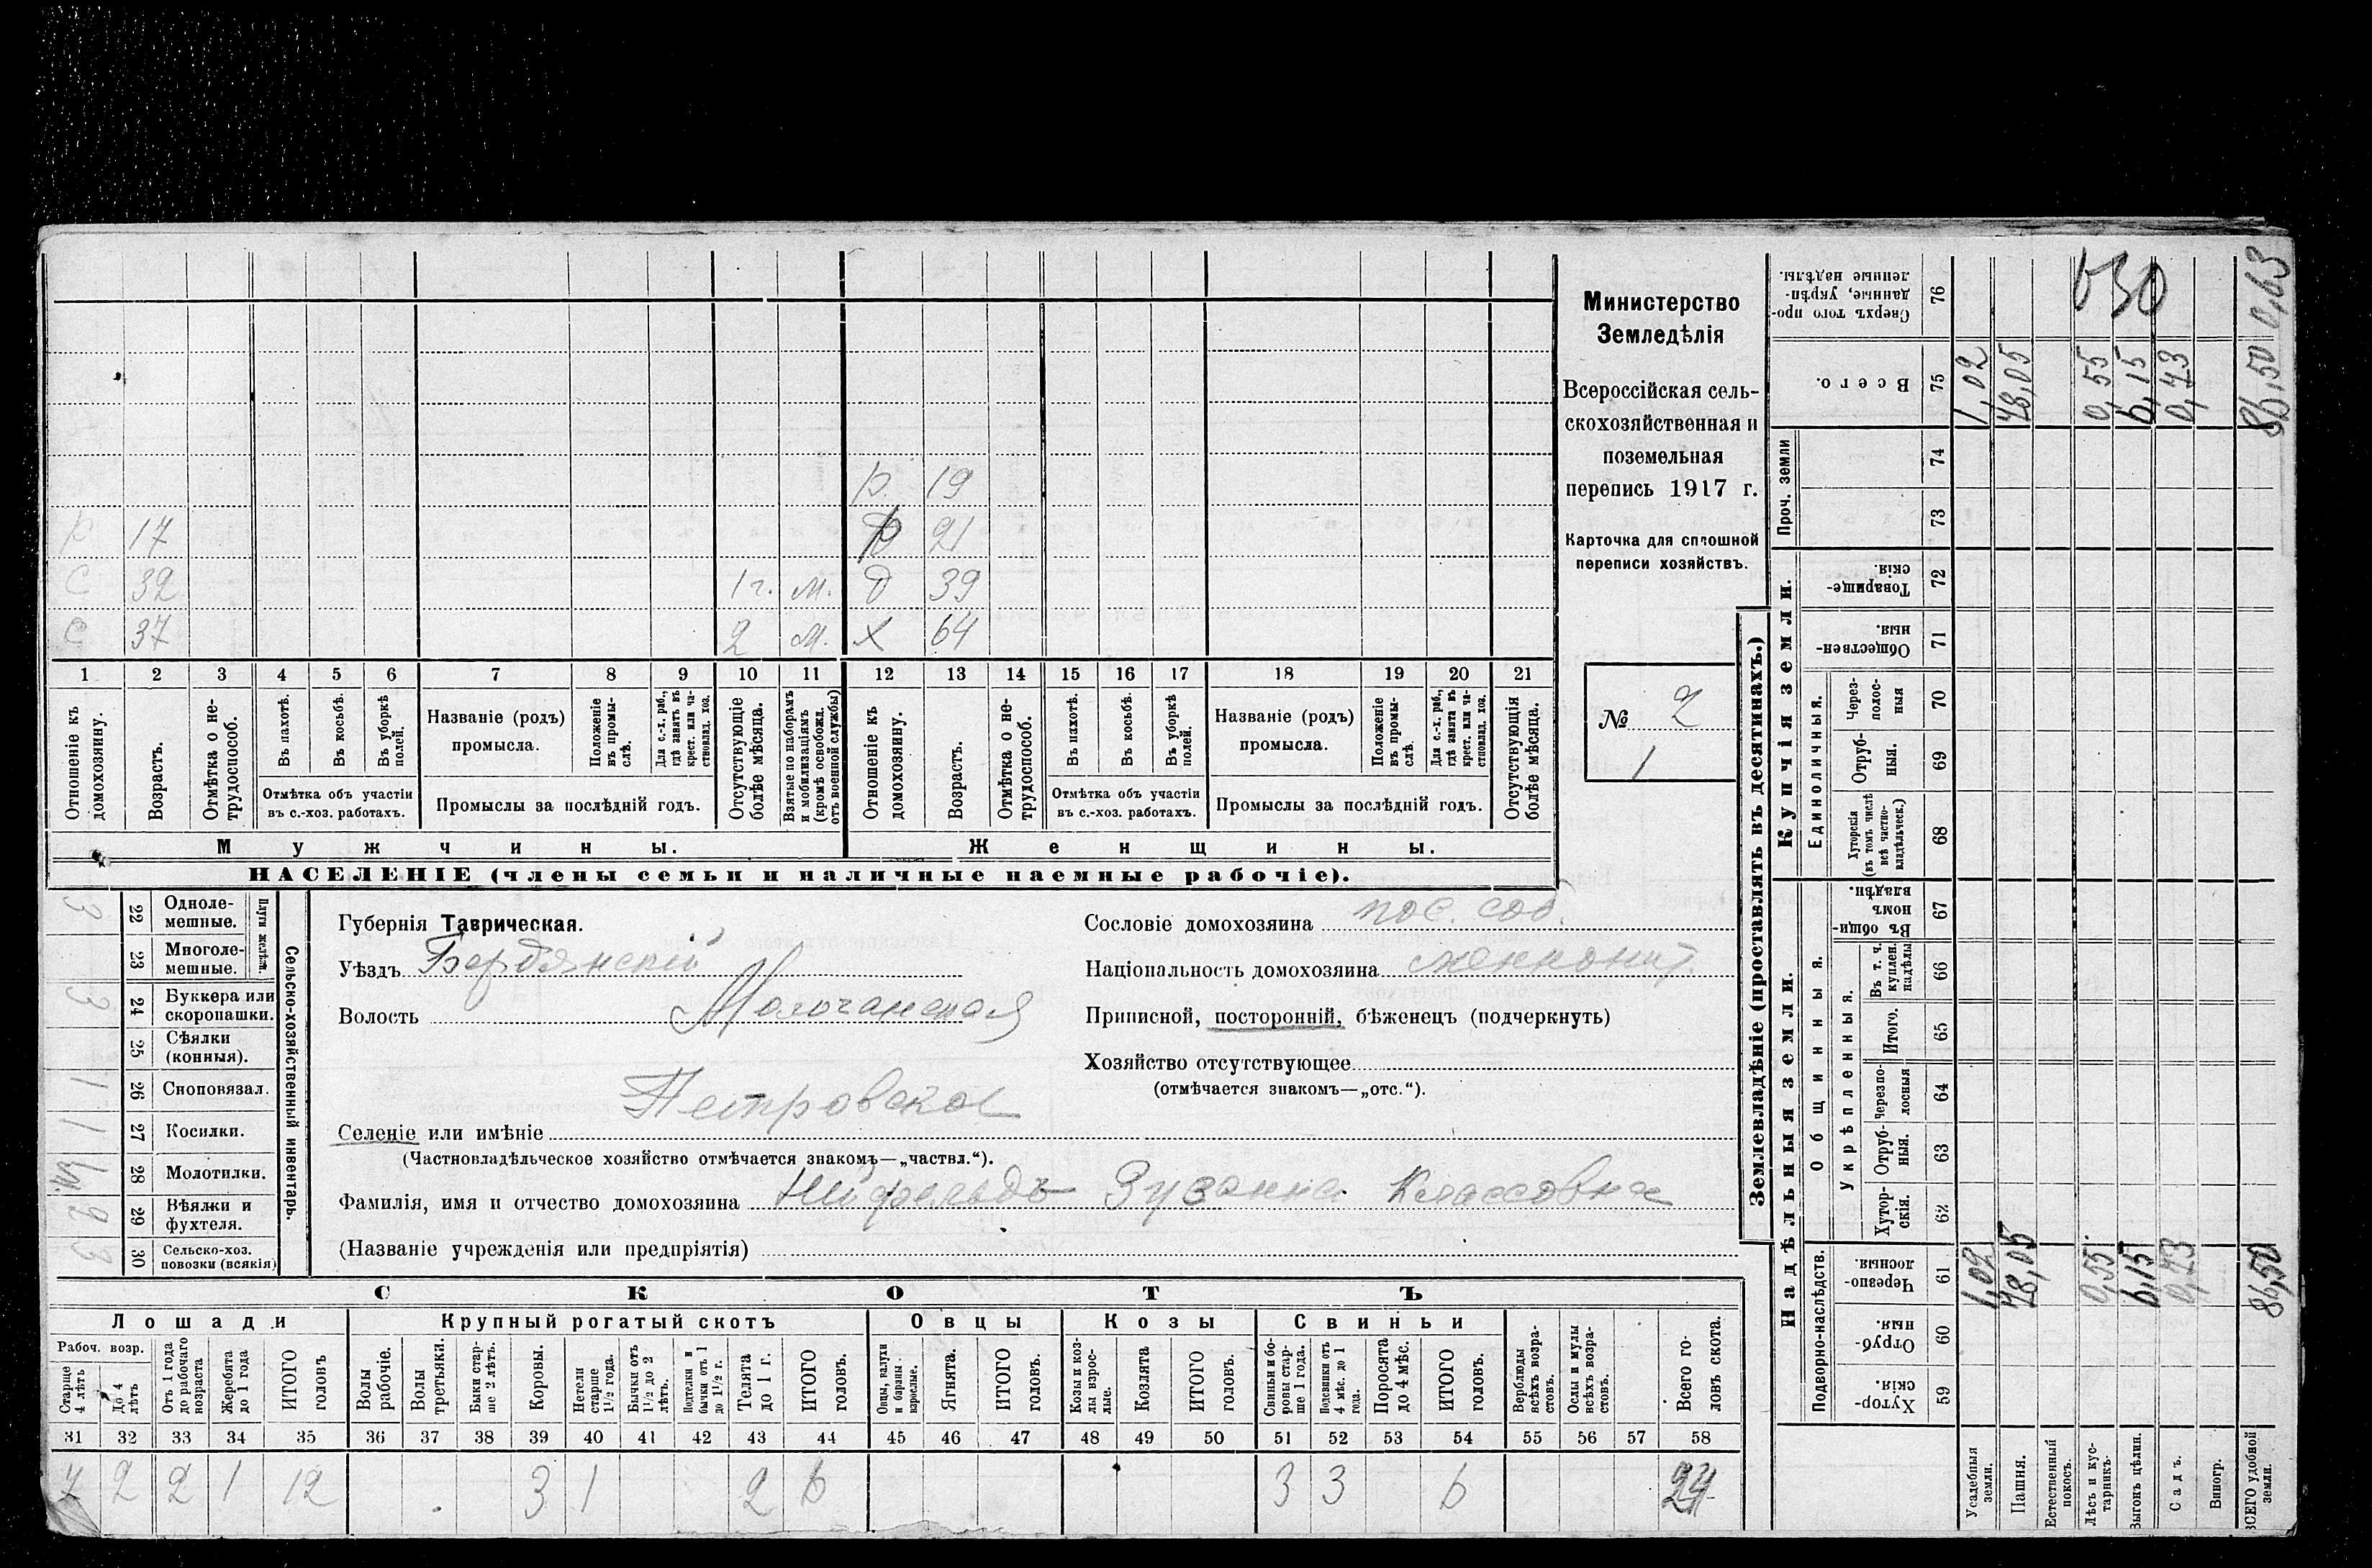 р. 19
р 17 р 21
с 32 1 г. м. д 39
с 37 2 м. х 64
1 2 3 4 5 6 7 8 9 10 11 12 13 14 15 16 17 18 19 20 21
Отношеніе къ домохозяину.
Возрастъ.
Отмѣтка о не-трудоспособ.
Въ пахотѣ.
Въ косьбѣ.
Въ уборкѣ полей.
Отмѣтка объ участіи
въ с.-хоз. работахъ.
Названіе (родъ)
промысла.
Положеніе въ промы-слѣ.
Для с.-х. раб., гдѣ занятъ въ крест. или ча-стновлад. хоз.
Промыслы за послѣдній годъ.
Отсутствующіе болѣе мѣсяца.
Взятые по наборамъ и мобилизаціямъ (кромѣ освобожд. отъ военной службы)
Отношеніе къ домохозяину.
Возрастъ.
Отмѣтка о не-трудоспособ.
Въ пахотѣ.
Въ косьбѣ.
Въ уборкѣ полей.
Отмѣтка объ участіи
въ с.-хоз. работахъ.
Названіе (родъ)
промысла.
Положеніе въ промы-слѣ.
Для с.-х. раб., гдѣ занята въ крест. или ча-стновлад. хоз.
Промыслы за послѣдній годъ.
Отсутствующія болѣе мѣсяца.
Мужчины. Женщины.
НАСЕЛЕНІЕ (члены семьи и наличные наемные рабочіе).
Министерство
Земледѣлія
Всероссійская сель-
скохозяйственная и
поземельная
перепись 1917 г.
Карточка для сплошной
переписи хозяйствъ.
№ 2
1
Сельско-хозяйственный инвентарь.
Плуги желѣзн.
22 Одноле-мешные. 3
23 Многоле-мешные.
24 Буккера или скоропашки. 3
25 Сѣялки (конныя).
26 Сноповязал. 1
27 Косилки. 1
28 Молотилки.
29 Вѣялки и фухтеля. 2
30 Сельско-хоз. повозки (всякія) 3
Губернія Таврическая.
Уѣздъ Бердянскій
Волость Молочанская
Петровское
Селеніе или имѣніе
(Частновладѣльческое хозяйство отмѣчается знакомъ—„частвл.“).
Фамилія, имя и отчество домохозяина Нейфельдъ Зузанна Классовна
(Названіе учрежденія или предпріятія)
Сословіе домохозяина пос. соб.
Національность домохозяина меннонит.
Приписной, посторонній, бѣженецъ (подчеркнуть)
Хозяйство отсутствующее
(отмѣчается знакомъ—„отс.“).
СКОТЪ
Лошади Крупный рогатый скотъ Овцы Козы Свиньи
Рабоч. возр.
Старше 4 лѣтъ
До 4 лѣтъ
Отъ 1 года до рабочаго возраста
Жеребята до 1 года
ИТОГО головъ
Волы рабочіе.
Волы третьяки.
Быки стар-ше 2 лѣтъ.
Коровы.
Нетели старше 1½ года.
Бычки отъ 1½ до 2 лѣтъ.
Подтелки и бычки отъ 1 до 1½ г.
Телята до 1 г.
ИТОГО головъ.
Овцы, валухи и бараны взрослые.
Ягнята.
ИТОГО головъ.
Козы и коз-лы взрос-лые.
Козлята
ИТОГО головъ.
Свиньи и бо-ровы стар-ше 1 года.
Подсвинки отъ 4 мѣс. до 1 года.
Поросята до 4 мѣс.
ИТОГО головъ.
Верблюды всѣхъ возра-стовъ.
Ослы и мулы всѣхъ возра-стовъ.
Всего го-ловъ скота.
31 32 33 34 35 36 37 38 39 40 41 42 43 44 45 46 47 48 49 50 51 52 53 54 55 56 57 58
7 2 2 1 12 3 1 2 6 3 3 6 24
Землевладѣніе (проставлять въ десятинахъ.)
Купчія земли.
Надѣльныя земли.
Проч. земли
Единоличныя.
Общинныя.
Укрѣпленныя.
Подворно-наслѣдств.
Сверхъ того про-данные, укрѣп-ленные надѣлы. 76
Всего. 75
74
73
Товарище-скія. 72
Обществен-ныя. 71
Через-полос-ныя 70
Отруб-ныя. 69
Хуторскія (въ томъ числѣ всѣ частно-владѣльческ.) 68
Въ общи-номъ владѣн. 67
Въ т. ч. куплен. надѣлы 66
Итого. 65
Черезпо-лосныя 64
Отруб-ныя. 63
Хутор-скія. 62
Черезпо-лосныя. 61
Отруб-ныя. 60
Хутор-скія. 59
630
1,02 78,05 0,55 6,15 0,73 86,50 0,63
1,02 78,05 0,55 6,15 0,73 86,50
Усадебныя земли.
Пашня.
Естественный покосъ.
Лѣсъ и кус-тарникъ.
Выгонъ цѣлин.
Садъ.
Виногр.
ВСЕГО удобной земли.